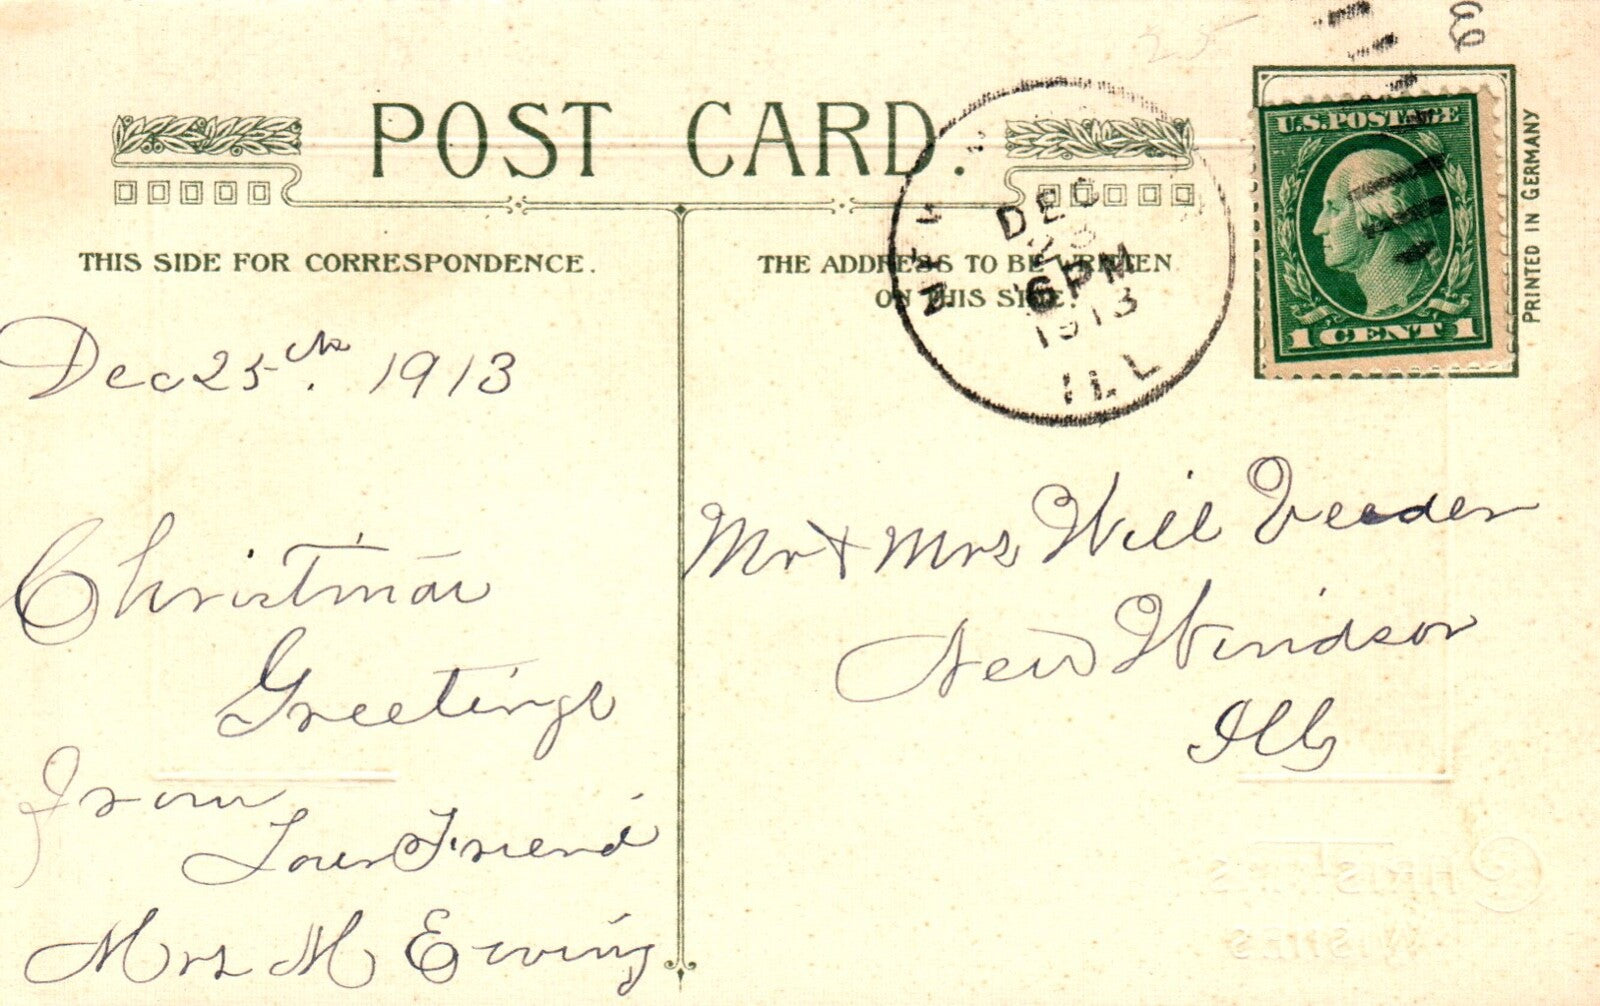 25
POST CARD.
THIS SIDE FOR CORRESPONDENCE.
THE ADDRESS TO BE WRITTEN
ON THIS SIDE.
NEW
DEC
23
6 PM
1913
ILL
U.S. POSTAGE
1 CENT 1
PRINTED IN GERMANY
Dec 25th. 1913
Christmas
Greetings
from
Your Friend
Mrs M Ewing
Mr & Mrs Will Veeder
New Windsor
Ills
CHRISTMAS
WISHES